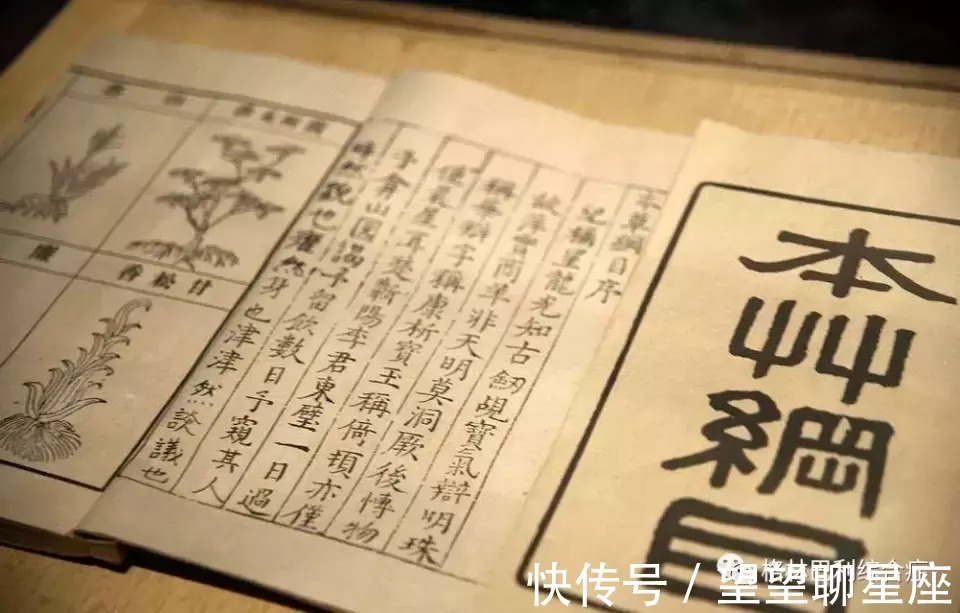 本艸綱目
本草綱目序
紀稱望龍光知古劒覘寶氣辯明珠
故萍實商羊非天明莫洞厥後博物
稱華辯字稱康析寶玉稱倚頓亦僅
僅晨星耳楚蘄陽李君東璧一日過
予弇山園謁予留飲數日予窺其人
睟然貌也癯然身也津津然談議也
甘松香
格林巴利综合症
快传号 / 望望聊星座